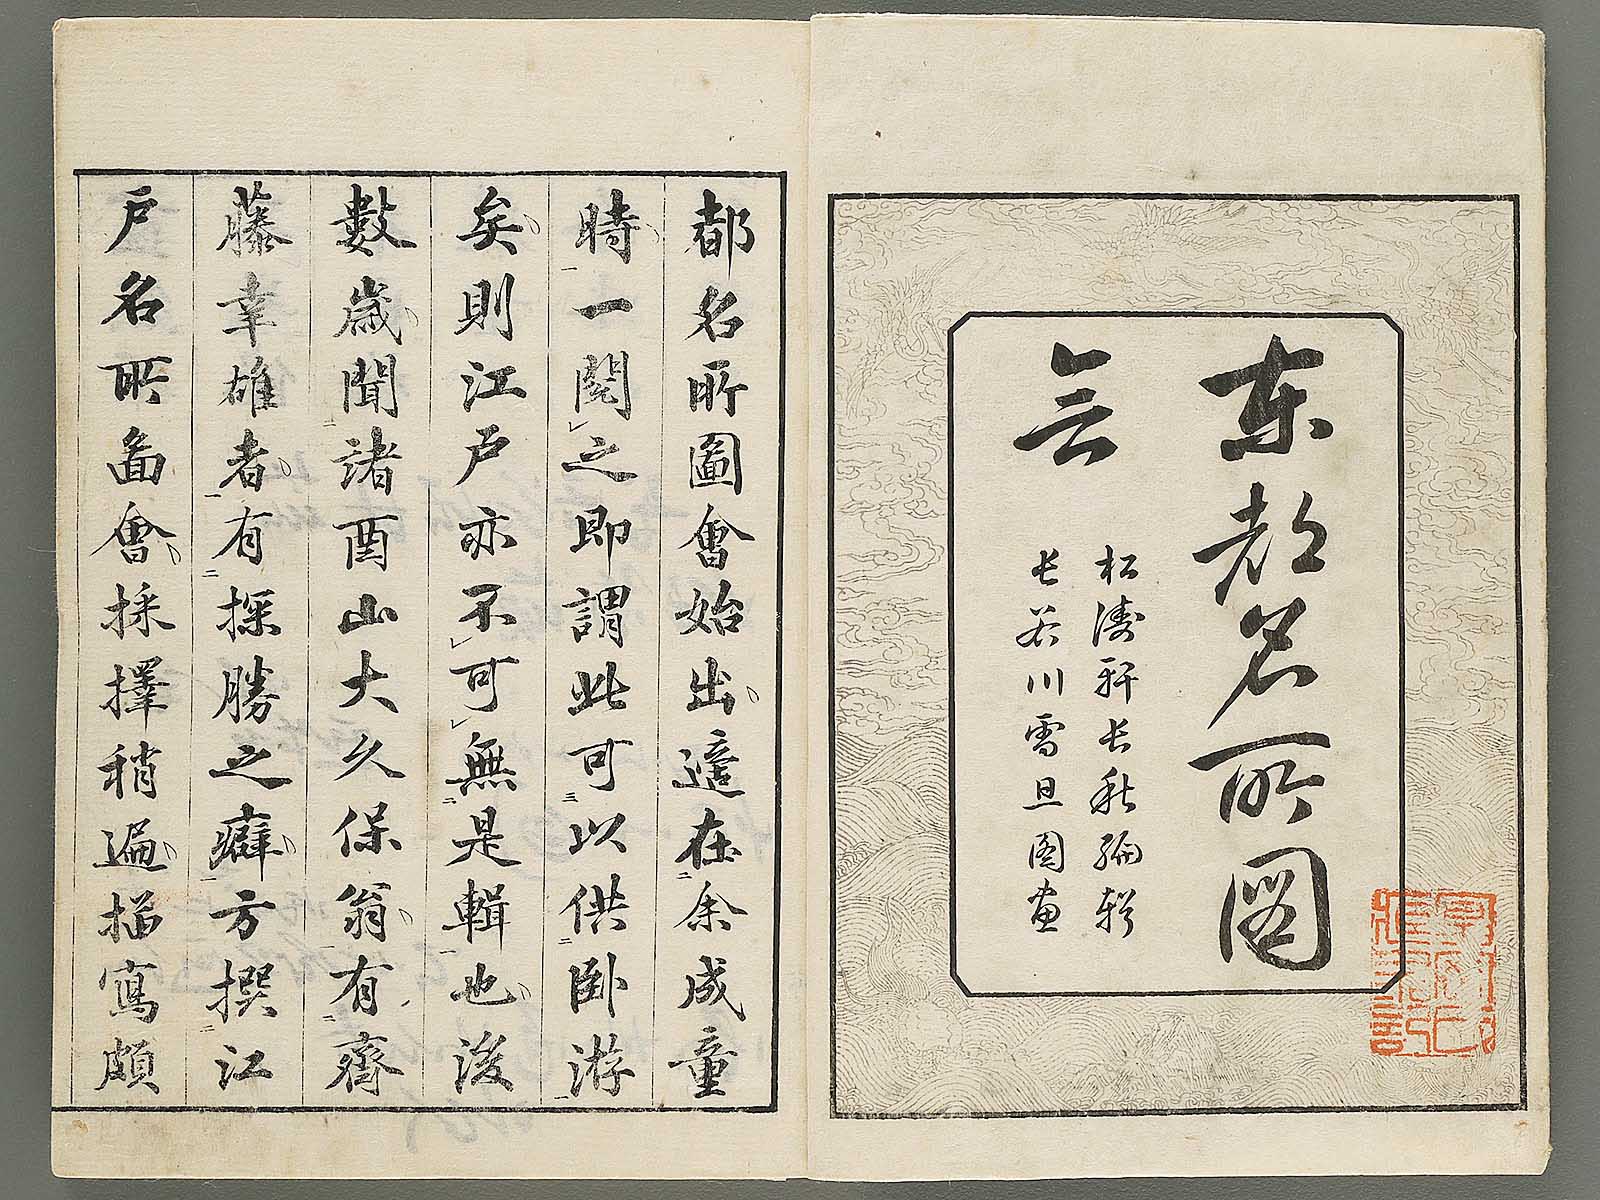 東都名所圖
會
松濤軒長秋編輯
長谷川雪旦圖畫
都名所圖會始出適在余成童
時一閲之即謂此可以供臥游
矣則江戸亦不可無是輯也後
數歳聞諸酉山大久保翁有齊
藤幸雄者有探勝之癖方撰江
戸名所圖會採擇稍遍描寫頗